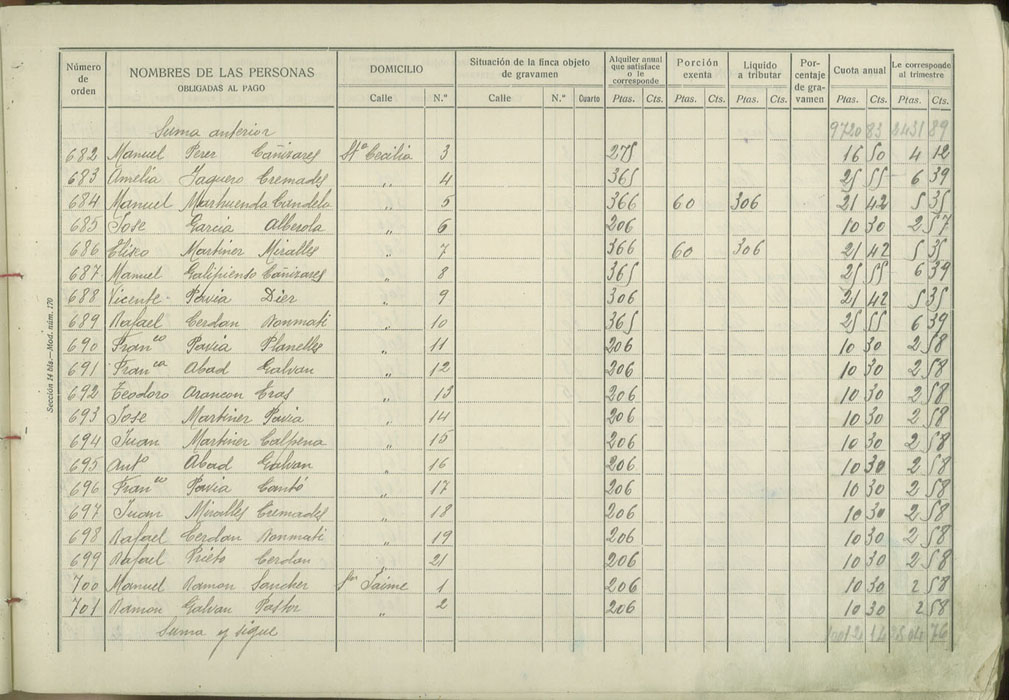 Número de orden NOMBRES DE LAS PERSONAS OBLIGADAS AL PAGO DOMICILIO Situación de la finca objeto de gravamen Alquiler anual que satisface o le corresponde Porción exenta Líquido a tributar Por- centaje de gra- vamen Cuota anual Le corresponde al trimestre
Calle N.º Calle N.º Cuarto Ptas. Cts. Ptas. Cts. Ptas. Cts. Ptas. Cts. Ptas. Cts.
Suma anterior 9720 83 2431 89
682 Manuel Perez Cañizares Sta Cecilia 3 275 16 50 4 12
683 Amelia Jaquero Cremades „ 4 365 25 55 6 39
684 Manuel Marhuenda Candela „ 5 366 60 306 21 42 5 35
685 Jose Garcia Alberola „ 6 206 10 30 2 57
686 Eliseo Martinez Miralles „ 7 366 60 306 21 42 5 35
687 Manuel Galipienso Cañizares „ 8 365 25 55 6 39
688 Vicente Pavia Diez „ 9 306 21 42 5 35
689 Rafael Cerdan Ronmati „ 10 365 25 55 6 39
690 Franco Pavia Planelles „ 11 206 10 30 2 58
691 Franca Abad Galvan „ 12 206 10 30 2 58
692 Teodoro Arancon Eras „ 13 206 10 30 2 58
693 Jose Martinez Pavia „ 14 206 10 30 2 58
694 Juan Martinez Calpena „ 15 206 10 30 2 58
695 Anto Abad Galvan „ 16 206 10 30 2 58
696 Franco Pavia Cantó „ 17 206 10 30 2 58
697 Juan Miralles Cremades „ 18 206 10 30 2 58
698 Rafael Cerdan Ronmati „ 19 206 10 30 2 58
699 Rafael Prieto Cerdan „ 21 206 10 30 2 58
700 Manuel Ramon Sanchez Sn Jaime 1 206 10 30 2 58
701 Ramon Galvan Pastor „ 2 206 10 30 2 58
Suma y sigue 76
Sección 14 bis.—Mod. núm. 170